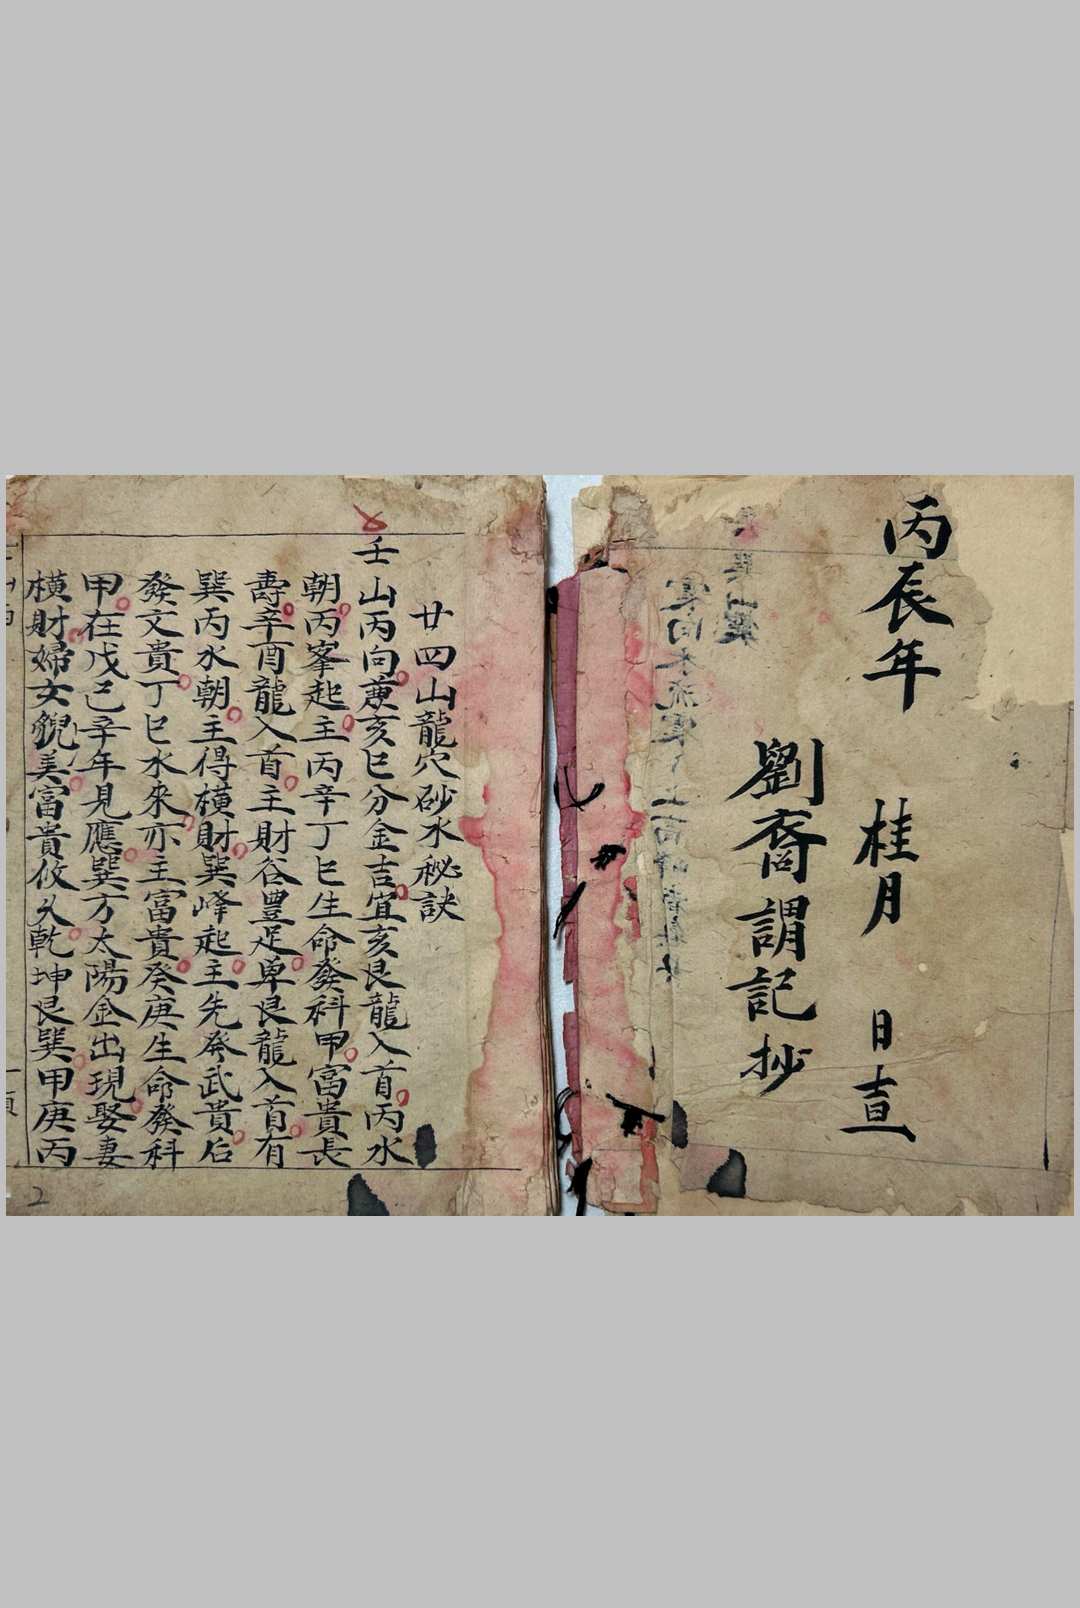 丙辰年
桂月 日吉
劉裔謂記抄
廿四山龍穴砂水秘訣
壬山丙向兼亥巳分金吉宜亥艮龍入首丙水
朝丙峯起主丙辛丁巳生命發科甲富貴長
壽辛酉龍入首主財谷豊足单艮龍入首有
巽丙水朝主得橫財巽峰起主先発武貴后
發文貴丁巳水來亦主富貴癸庚生命發科
甲在戊己辛年見應巽方太陽金出現娶妻
橫財婦女貌美富貴攸久乾坤艮巽甲庚丙
2